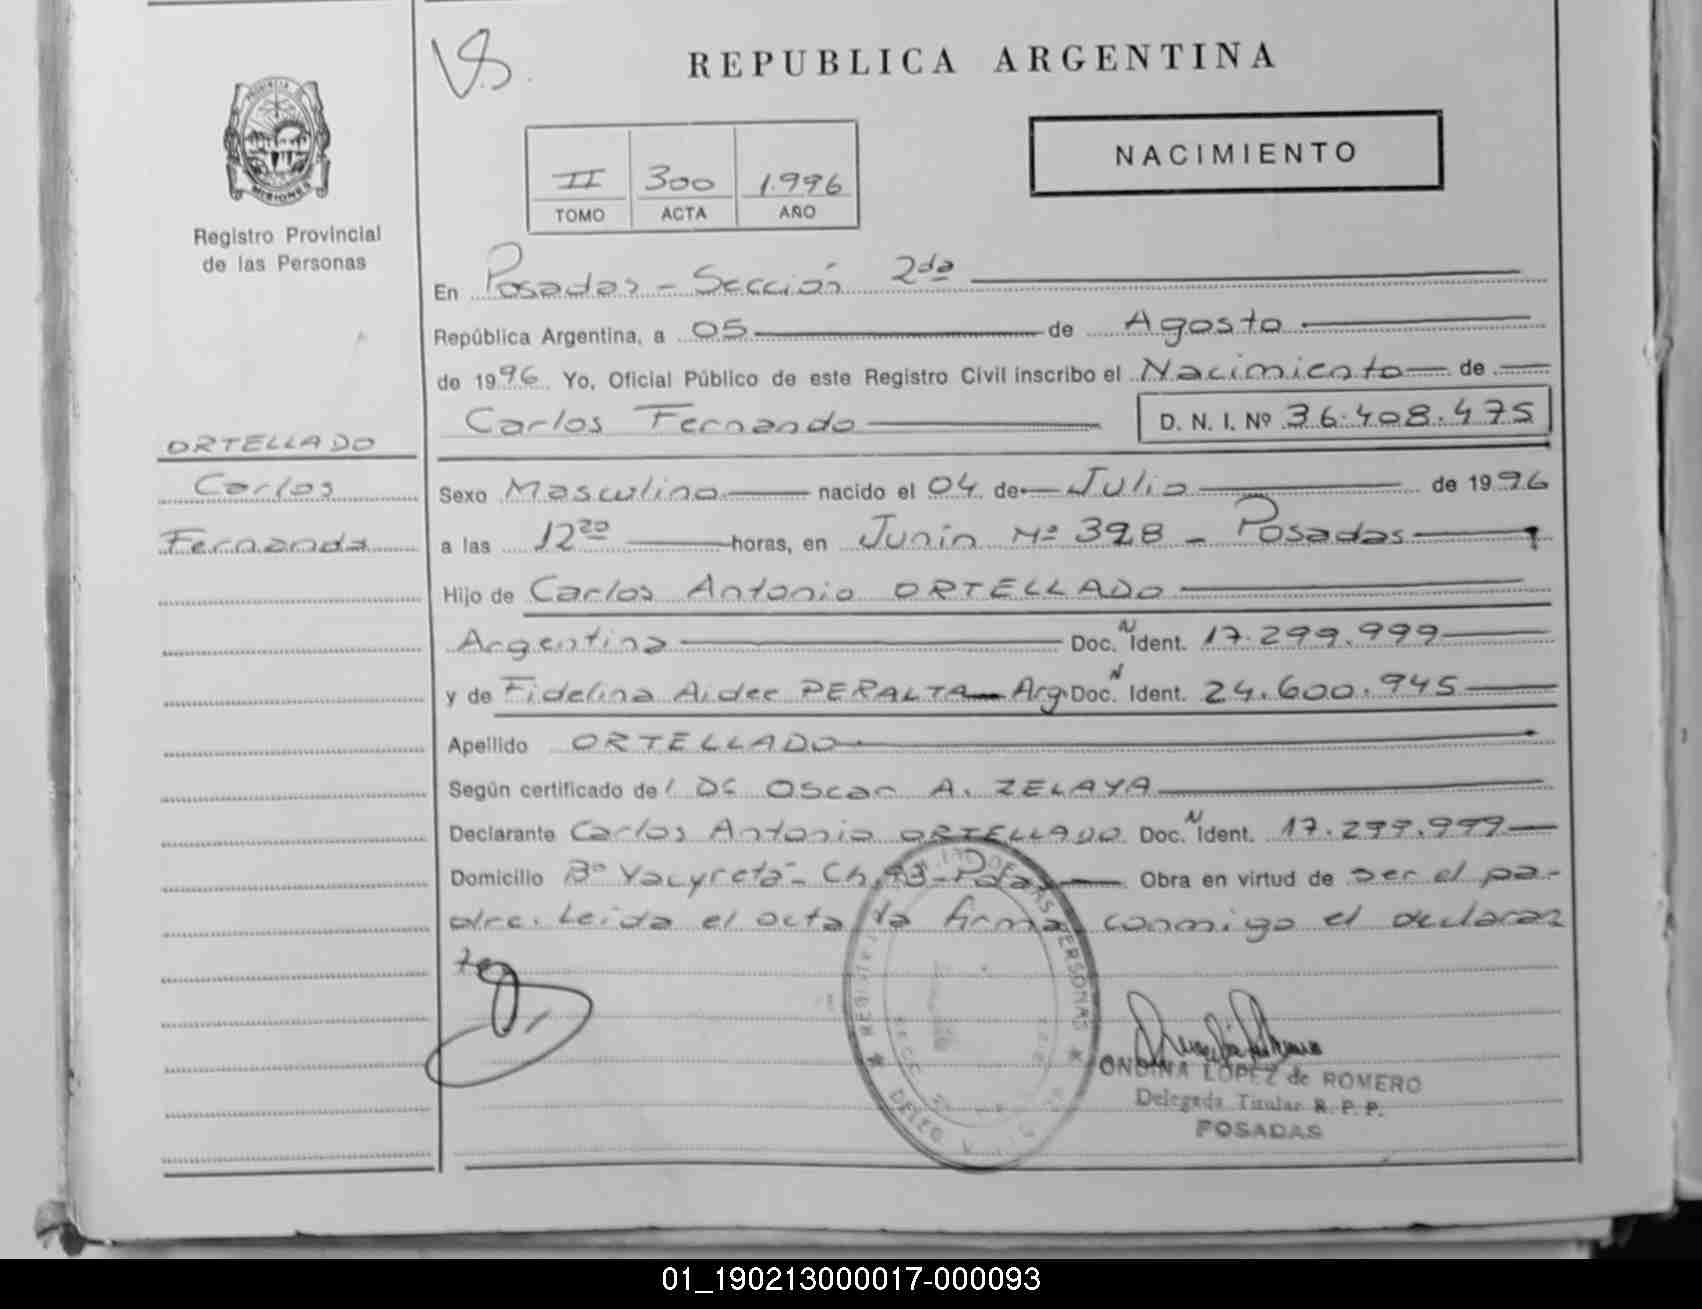 REPUBLICA ARGENTINA
NACIMIENTO
II 300 1.996
TOMO ACTA AÑO
PROVINCIA DE
MISIONES
Registro Provincial
de las Personas
En Posadas - Sección 2da
República Argentina, a 05 de Agosto
de 1996 Yo, Oficial Público de este Registro Civil inscribo el Nacimiento de
Carlos Fernando D. N. I. Nº 36.408.475
ORTELLADO
Carlos
Fernando
Sexo Masculino nacido el 04 de Julio de 1996
a las 12 20 horas, en Junín Nº 328 - Posadas
Hijo de Carlos Antonio ORTELLADO
Argentina Doc. N Ident. 17.299.999
y de Fidelina Aidee PERALTA Arg. Doc. N Ident. 24.600.945
Apellido ORTELLADO
Según certificado del Dr Oscar A. ZELAYA
Declarante Carlos Antonio ORTELLADO Doc. N Ident. 17.299.999
Domicilio Bº Yacyretá - Ch. Obra en virtud de ser el pa-
dre. Leida el acta la firma conmigo el declaran
te
REGISTRO DE LAS PERSONAS
DELEG
ONDINA LOPEZ de ROMERO
Delegada Titular R. P. P.
POSADAS
01_190213000017-000093